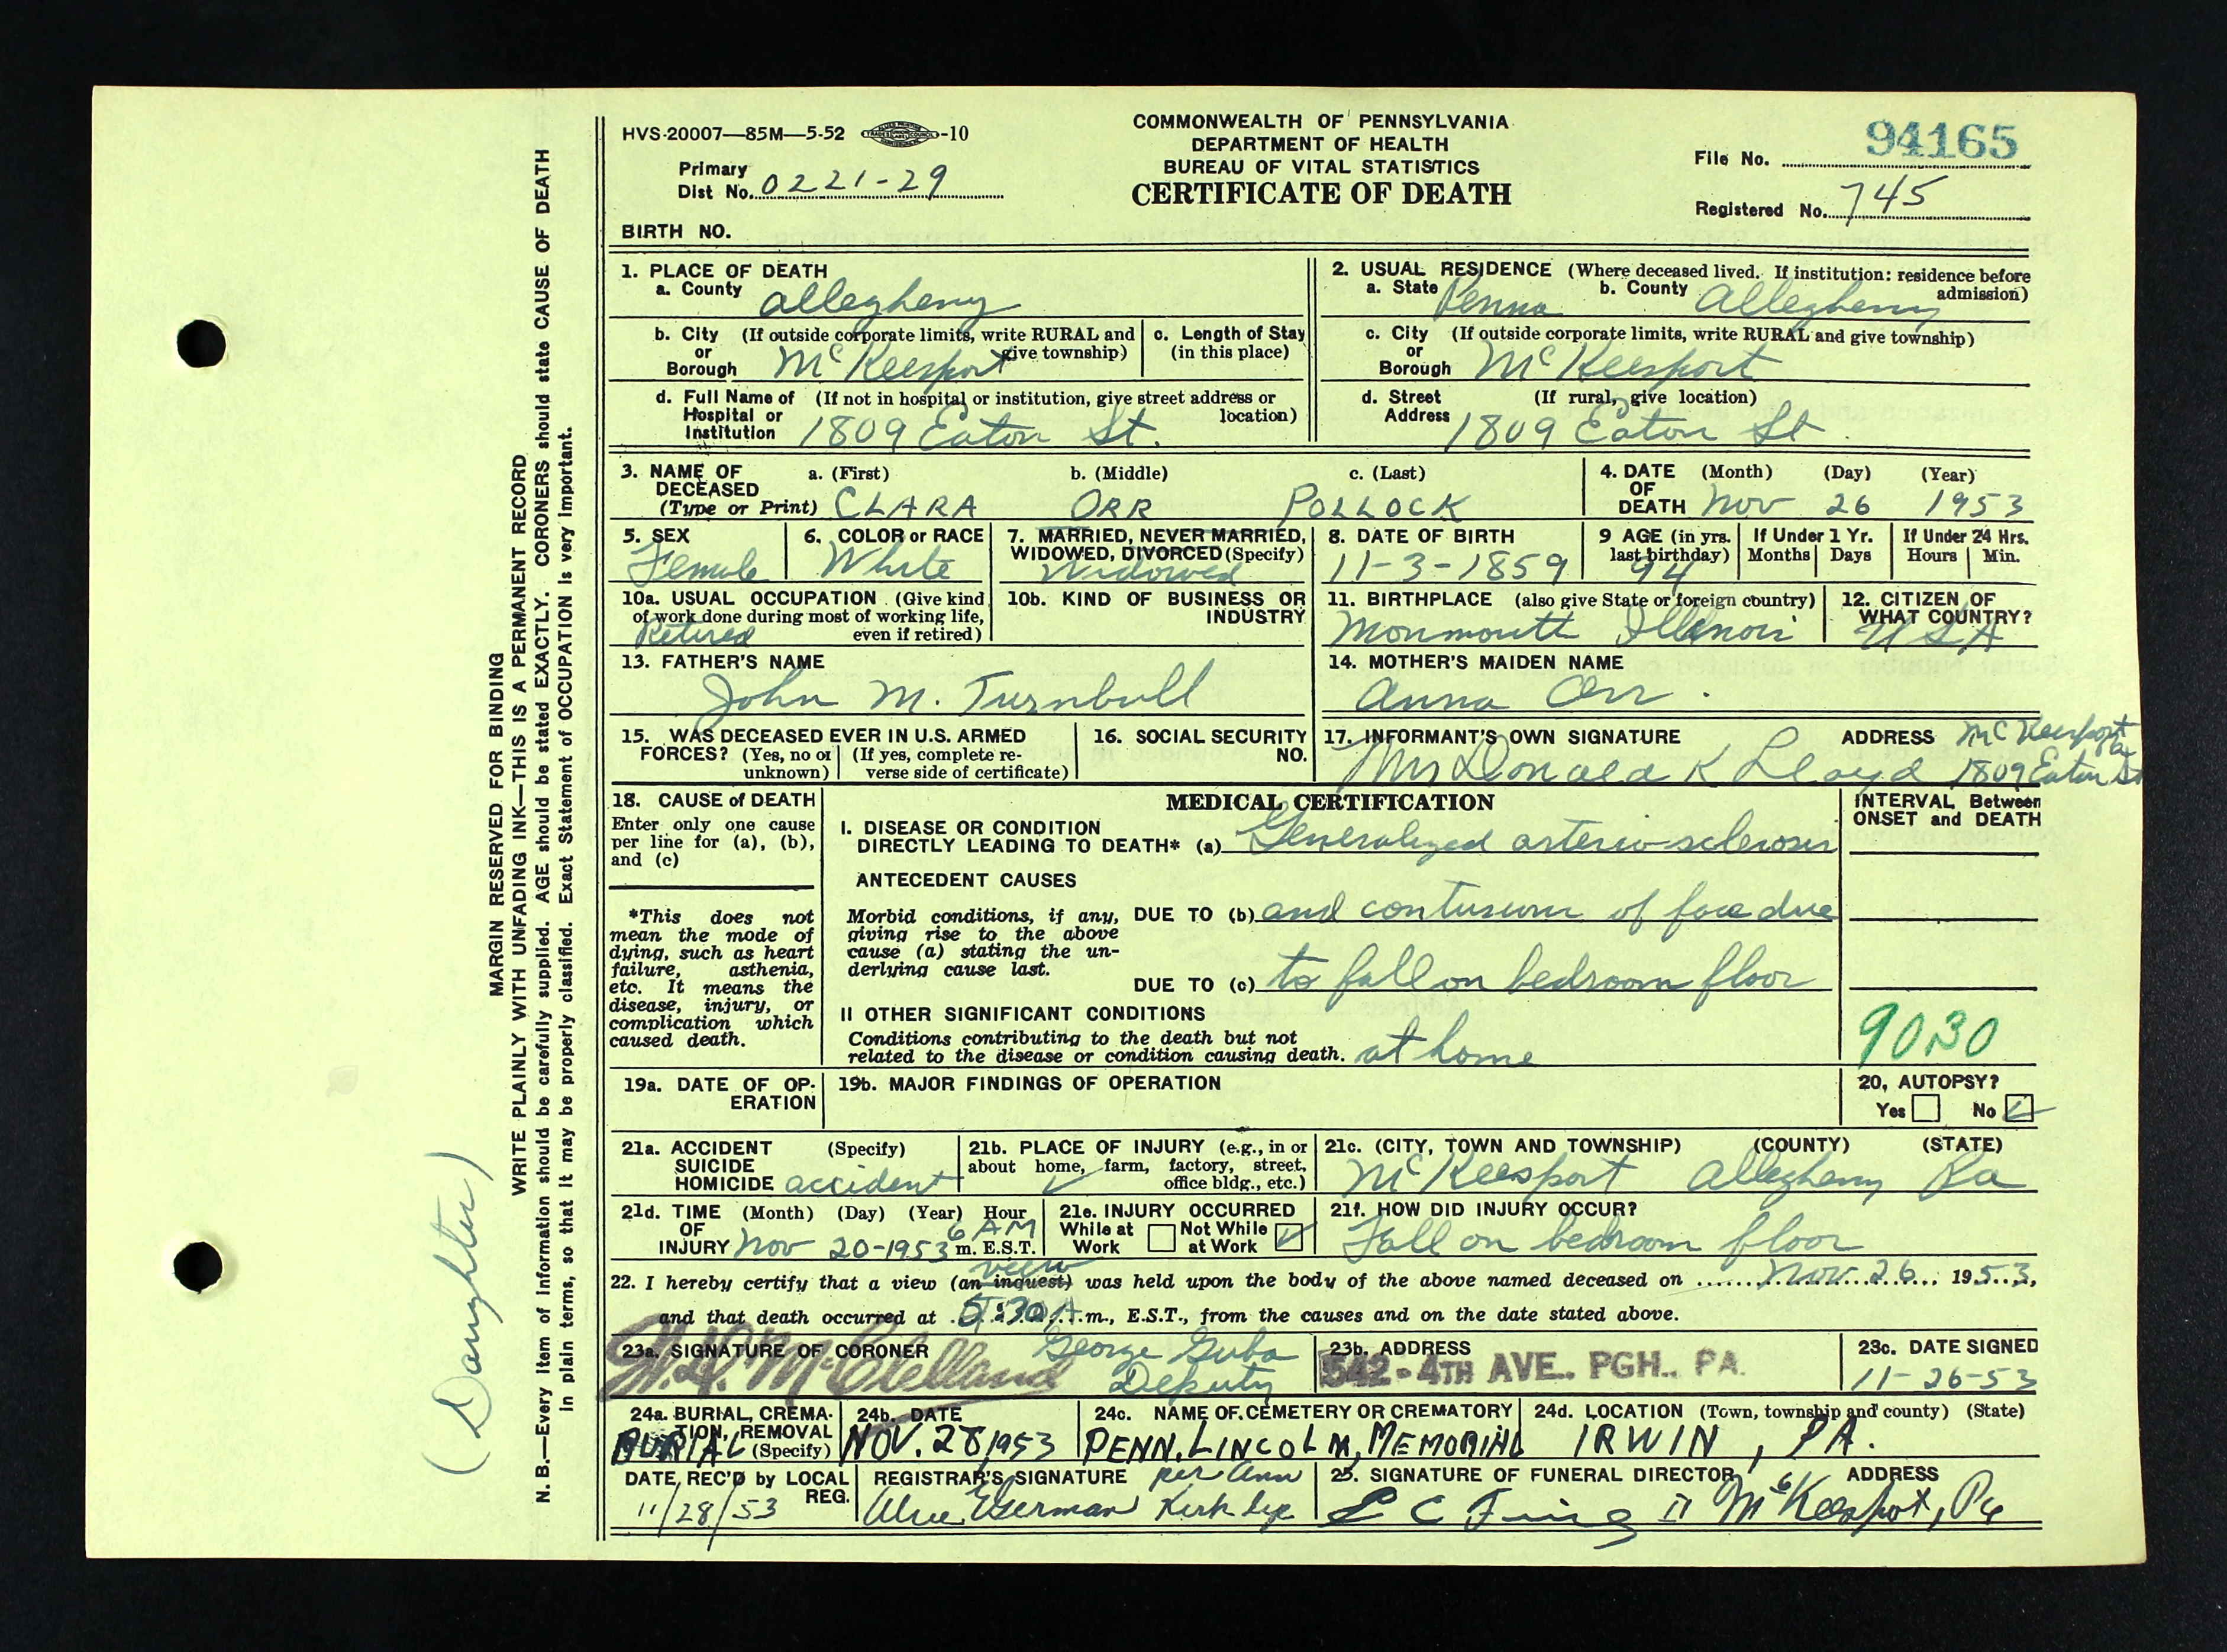 HVS-20007—85M—5-52 -10
COMMONWEALTH OF PENNSYLVANIA
DEPARTMENT OF HEALTH
BUREAU OF VITAL STATISTICS
CERTIFICATE OF DEATH
Primary
Dist No. 0221-29
File No. 94165
Registered No. 745
BIRTH NO.
1. PLACE OF DEATH
a. County Allegheny
b. City (If outside corporate limits, write RURAL and
or give township)
Borough McKeesport
c. Length of Stay
(in this place)
d. Full Name of (If not in hospital or institution, give street address or
Hospital or location)
Institution 1809 Eaton St.
2. USUAL RESIDENCE (Where deceased lived. If institution: residence before
admission)
a. State Penna b. County Allegheny
c. City (If outside corporate limits, write RURAL and give township)
or
Borough McKeesport
d. Street (If rural, give location)
Address 1809 Eaton St.
3. NAME OF a. (First) b. (Middle) c. (Last)
DECEASED
(Type or Print) CLARA ORR POLLOCK
4. DATE (Month) (Day) (Year)
OF
DEATH Nov 26 1953
5. SEX
Female
6. COLOR or RACE
White
7. MARRIED, NEVER MARRIED,
WIDOWED, DIVORCED (Specify)
Widowed
8. DATE OF BIRTH
11-3-1859
9 AGE (in yrs.
last birthday)
94
If Under 1 Yr.
Months Days
If Under 24 Hrs.
Hours Min.
10a. USUAL OCCUPATION (Give kind
of work done during most of working life,
even if retired)
Retired
10b. KIND OF BUSINESS OR
INDUSTRY
11. BIRTHPLACE (also give State or foreign country)
Monmouth Illinois
12. CITIZEN OF
WHAT COUNTRY?
USA
13. FATHER'S NAME
John M. Turnbull
14. MOTHER'S MAIDEN NAME
Anna Orr.
15. WAS DECEASED EVER IN U.S. ARMED
FORCES? (Yes, no or (If yes, complete re-
unknown) verse side of certificate)
16. SOCIAL SECURITY
NO.
17. INFORMANT'S OWN SIGNATURE ADDRESS McKeesport Pa
Mrs Donald K Lloyd 1809 Eaton St
18. CAUSE of DEATH
Enter only one cause
per line for (a), (b),
and (c)
*This does not
mean the mode of
dying, such as heart
failure, asthenia,
etc. It means the
disease, injury, or
complication which
caused death.
MEDICAL CERTIFICATION
I. DISEASE OR CONDITION
DIRECTLY LEADING TO DEATH* (a) Generalized arterio-sclerosis
ANTECEDENT CAUSES
Morbid conditions, if any,
giving rise to the above
cause (a) stating the un-
derlying cause last.
DUE TO (b) and contusions of face due
DUE TO (c) to fall on bedroom floor
II OTHER SIGNIFICANT CONDITIONS
Conditions contributing to the death but not
related to the disease or condition causing death. at home
INTERVAL Between
ONSET and DEATH
9030
19a. DATE OF OP-
ERATION
19b. MAJOR FINDINGS OF OPERATION
20, AUTOPSY?
Yes No
21a. ACCIDENT (Specify)
SUICIDE
HOMICIDE accident
21b. PLACE OF INJURY (e.g., in or
about home, farm, factory, street,
office bldg., etc.)
21c. (CITY, TOWN AND TOWNSHIP) (COUNTY) (STATE)
McKeesport Allegheny Pa
21d. TIME (Month) (Day) (Year) Hour
OF 6 AM
INJURY Nov 20-1953 m. E.S.T.
21e. INJURY OCCURRED
While at Not While
Work at Work
21f. HOW DID INJURY OCCUR?
Fall on bedroom floor
view
22. I hereby certify that a view (an inquest) was held upon the body of the above named deceased on Nov. 26, 1953,
and that death occurred at 5:30 A.m., E.S.T., from the causes and on the date stated above.
23a. SIGNATURE OF CORONER
W. D. McClelland
George Guba
Deputy
23b. ADDRESS
542-4TH AVE., PGH., PA.
23c. DATE SIGNED
11-26-53
24a. BURIAL, CREMA-
TION, REMOVAL
(Specify)
BURIAL
24b. DATE
NOV. 28, 1953
24c. NAME OF CEMETERY OR CREMATORY
PENN. LINCOLN, MEMORIAL
24d. LOCATION (Town, township and county) (State)
IRWIN, PA.
DATE REC'D by LOCAL
REG.
11/28/53
REGISTRAR'S SIGNATURE per Ann
25. SIGNATURE OF FUNERAL DIRECTOR ADDRESS
McKeesport, Pa
MARGIN RESERVED FOR BINDING
WRITE PLAINLY WITH UNFADING INK—THIS IS A PERMANENT RECORD
N. B.—Every item of information should be carefully supplied. AGE should be stated EXACTLY. CORONERS should state CAUSE OF DEATH
in plain terms, so that it may be properly classified. Exact Statement of OCCUPATION is very important.
(Daughter)